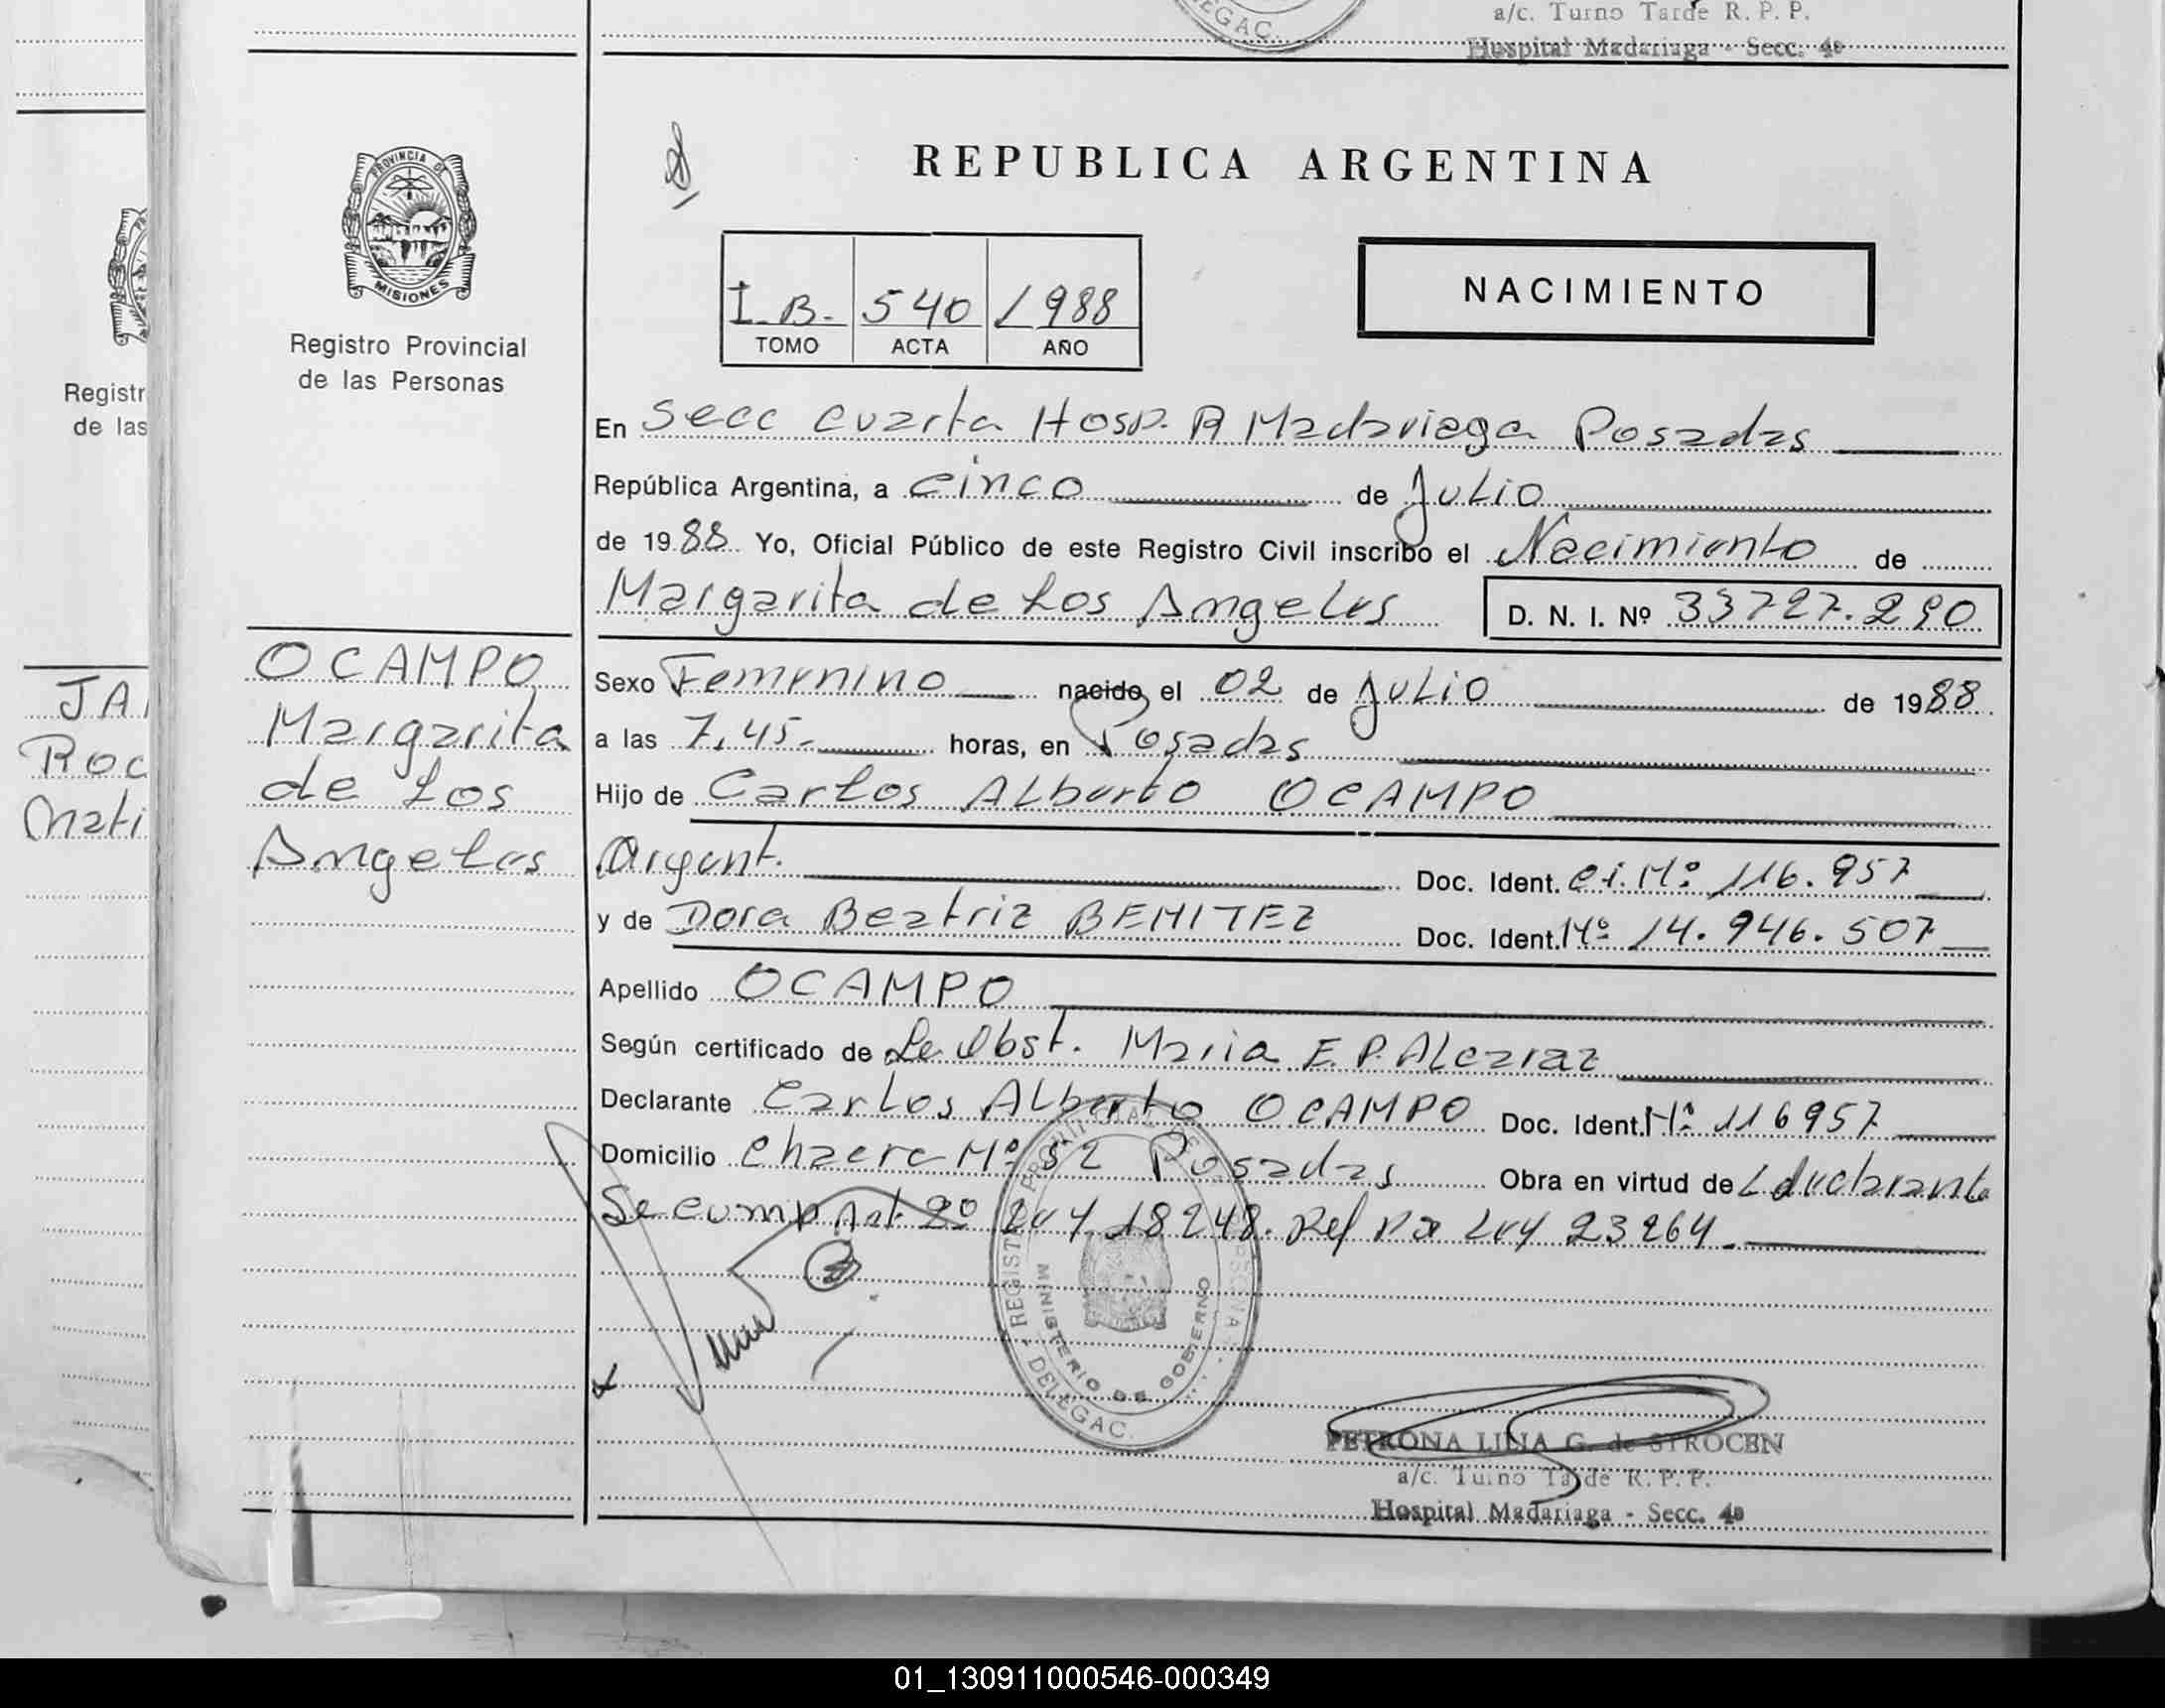 a/c. Turno Tarde R. P. P.
Hospital Madariaga - Secc. 4a
EGAC.
PROVINCIA DE
MISIONES
Registro Provincial
de las Personas
Registr
de las
REPUBLICA ARGENTINA
I B. 540 1988
TOMO ACTA AÑO
NACIMIENTO
En Secc Cuarta Hosp. R Madariaga Posadas
República Argentina, a cinco de Julio
de 1988 Yo, Oficial Público de este Registro Civil inscribo el Nacimiento de
Margarita de Los Angeles D. N. I. Nº 33727.290
OCAMPO
Margarita
de Los
Angeles
JA
Roc
Mati
Sexo Femenino nacido el 02 de Julio de 1988
a las 7,45.- horas, en Posadas
Hijo de Carlos Alberto OCAMPO
Argent. Doc. Ident. C.i. Nº 116.957
y de Dora Beatriz BENITEZ Doc. Ident. Nº 14.946.507
Apellido OCAMPO
Según certificado de La Obst. Maria E. P. Alcaraz
Declarante Carlos Alberto OCAMPO Doc. Ident. Nº 116957
Domicilio Chacra Nº 52 Posadas Obra en virtud de declarante
Se cump Art. 2º Ley 18248. Ref Ley 23264.
MINISTERIO DE GOBIERNO
DELEGAC.
PETRONA LILIA G. de STROCEN
a/c. Turno Tarde R. P. P.
Hospital Madariaga - Secc. 4a
01_130911000546-000349